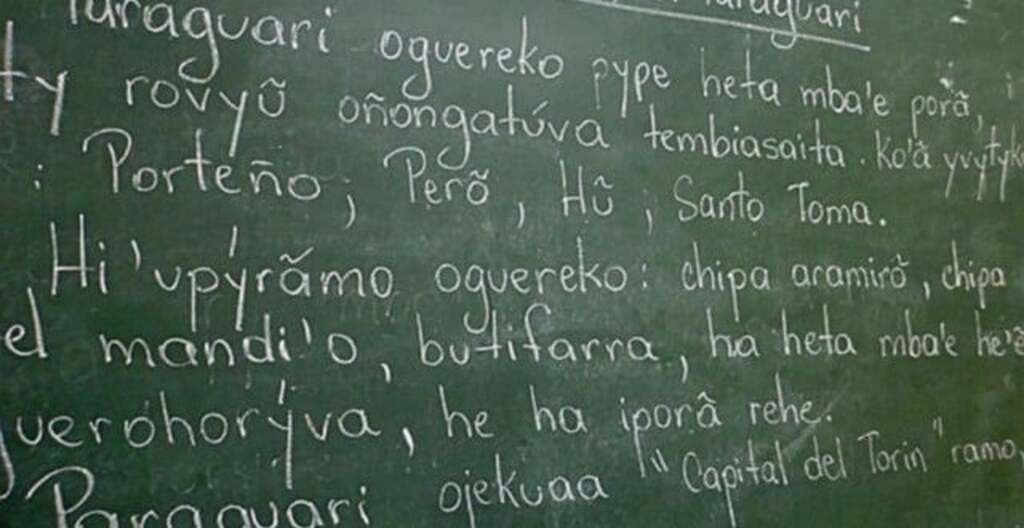 Paraguari
Paraguari oguereko pype heta mba'e porã,
ty rovyũ oñongatúva tembiasaita. Ko'ã
: Porteño; Perõ, Hũ, Santo Toma.
Hi'upýrãmo oguereko: chipa aramirõ, chipa
el mandi'o, butifarra, ha heta mba'e
guerohorýva, he ha iporã rehe.
Paraguari ojekuaa "Capital del Torin" ramo,